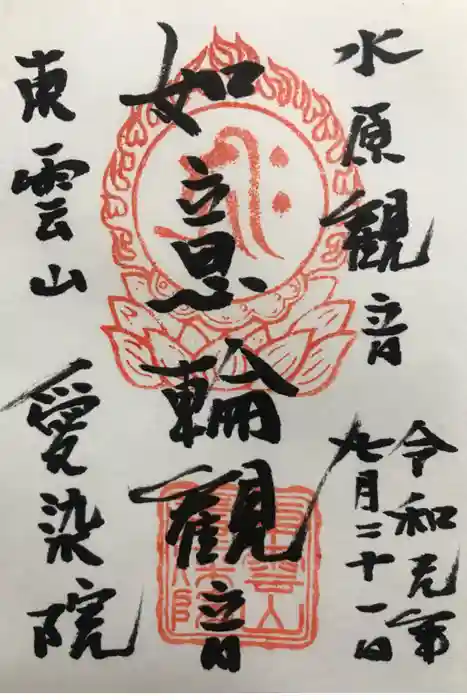 水原観音
令和元年
九月二十一日
如意輪観音
東雲山 愛染院